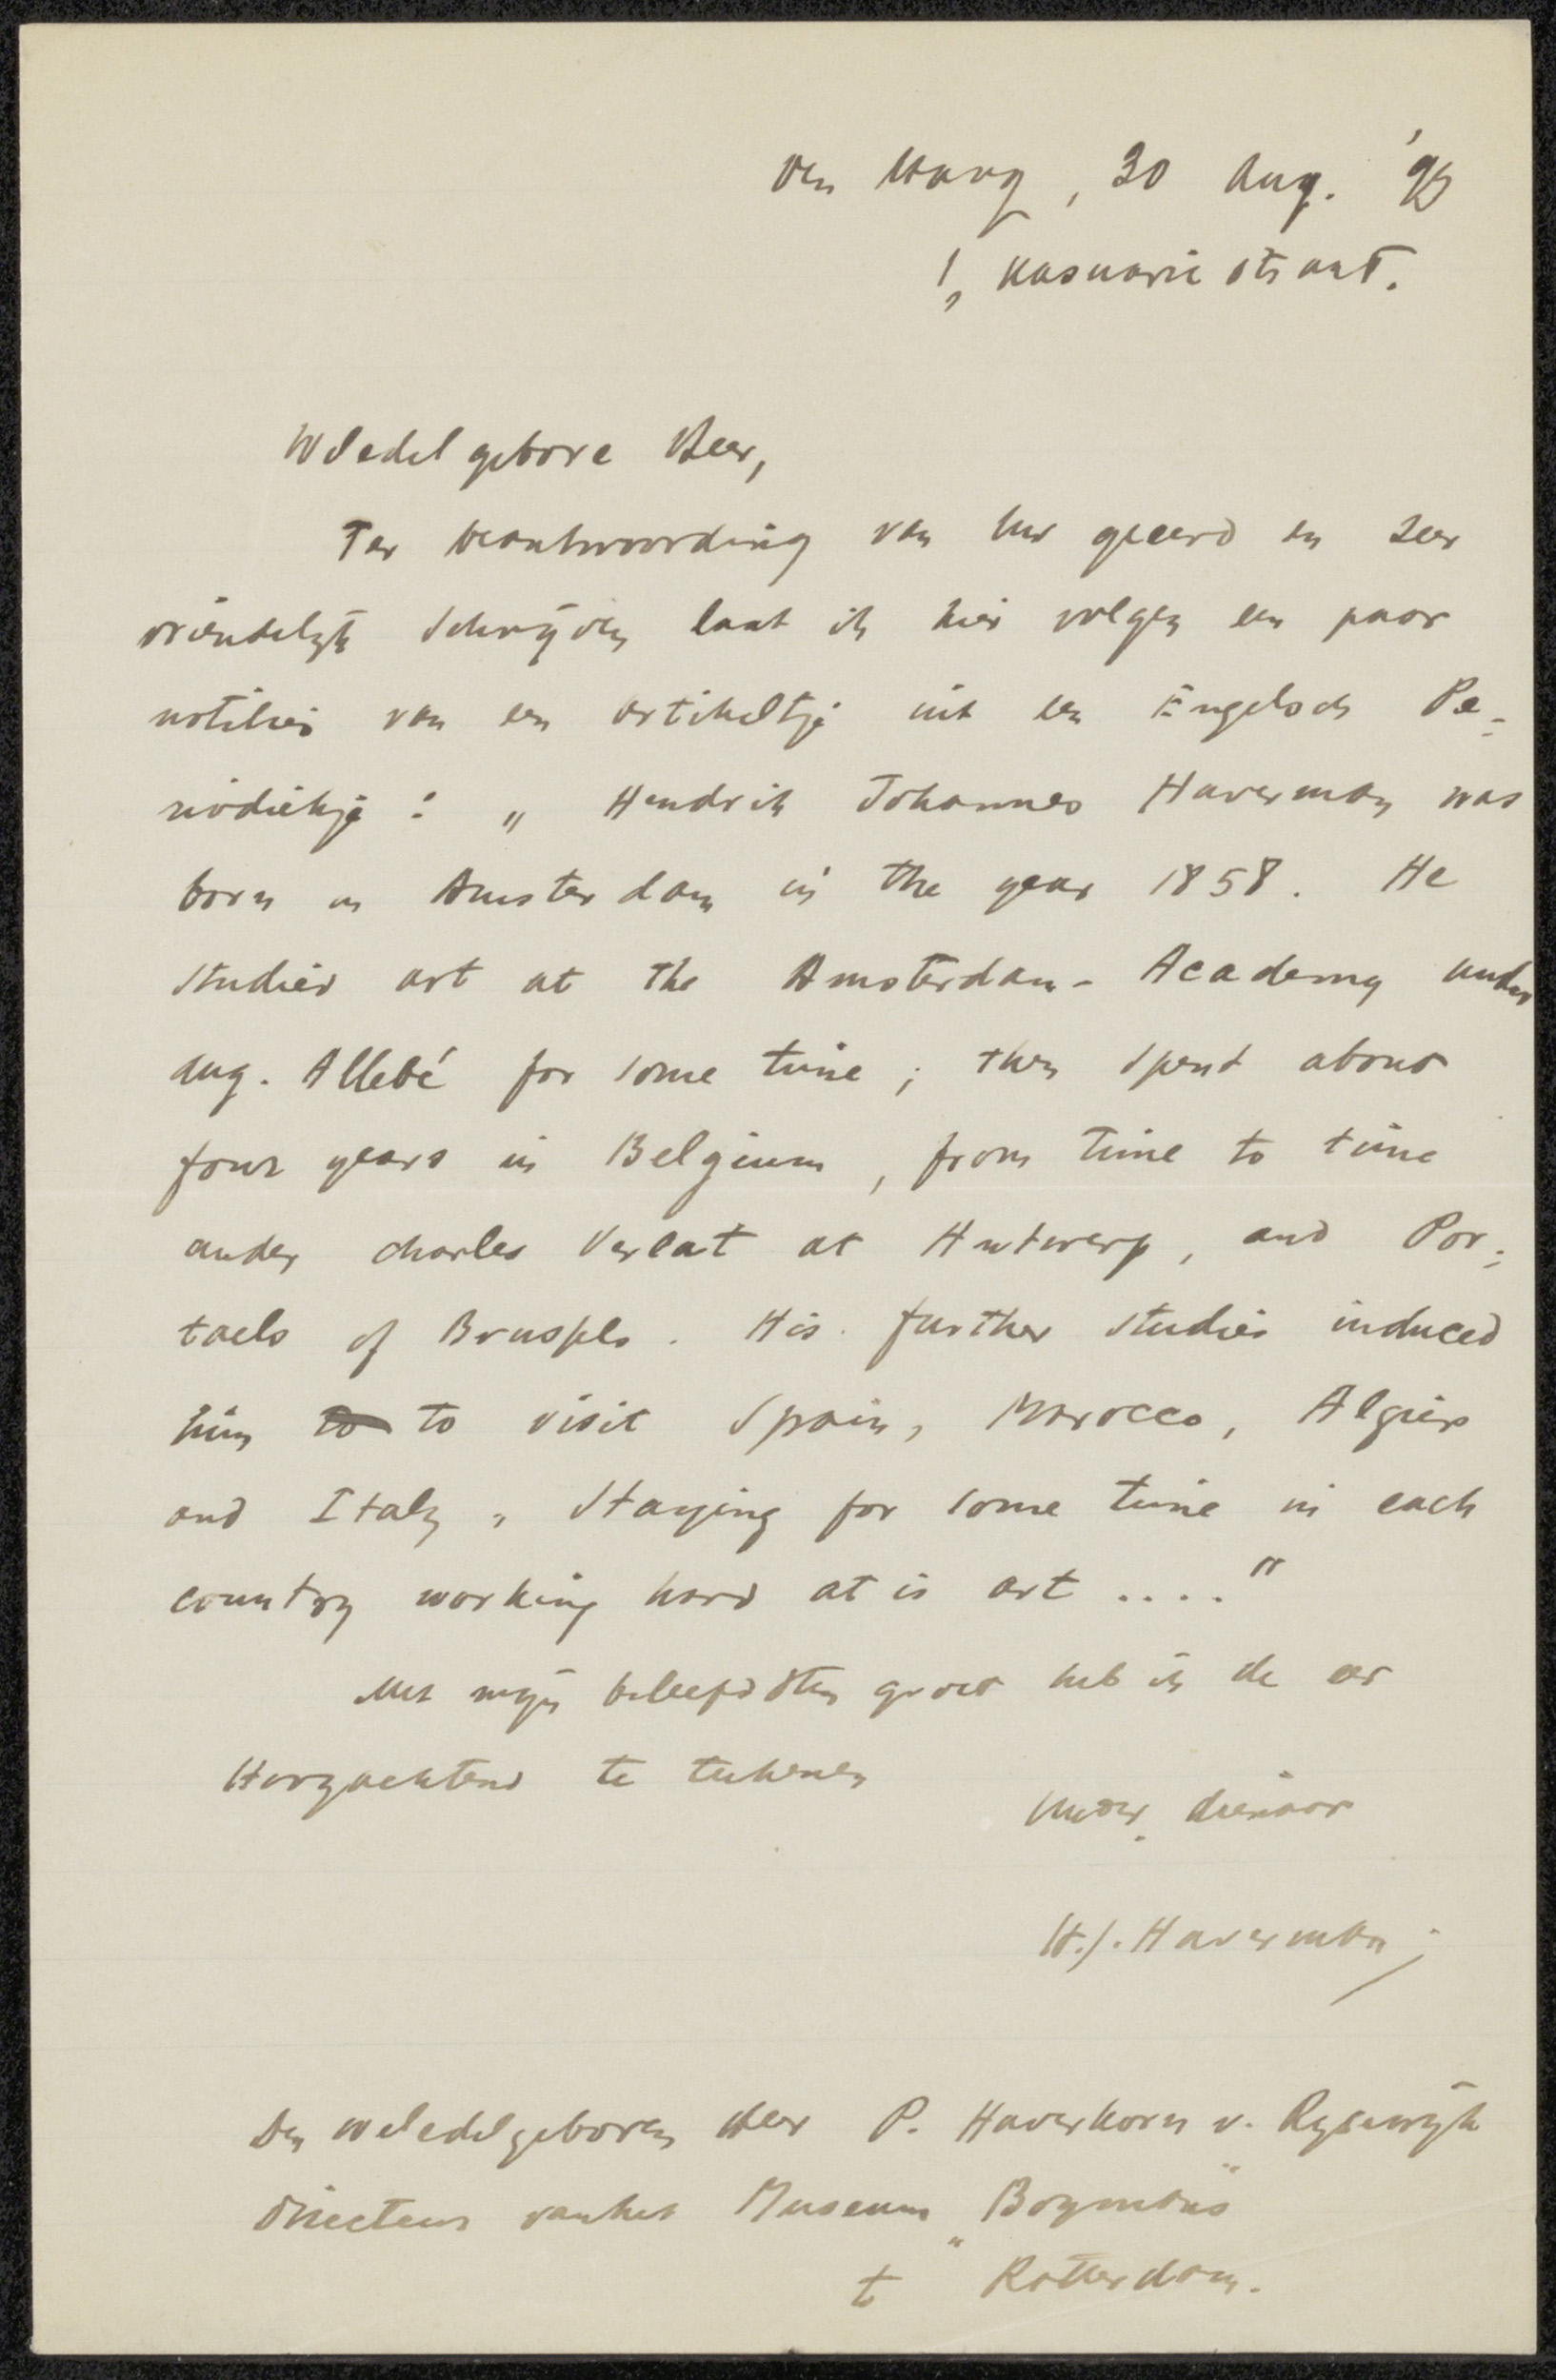 Den Haag, 30 Aug. '93
1, Kasuariestraat.
WelEdelgebore Heer,
Ter beantwoording van Uw geeerd en zeer
vriendelijk schrijven laat ik hier volgen een paar
notities van een artikeltje uit een Engelsch Pe-
riodiekje: „Hendrik Johannes Haverman was
born in Amsterdam in the year 1858. He
studied art at the Amsterdam-Academy under
Aug. Allebé for some time; then spent about
four years in Belgium, from time to time
under Charles Verlat at Antwerp, and Por-
taels of Brussels. His further studies induced
him to to visit Spain, Marocco, Algiers
and Italy, staying for some time in each
country working hard at is art ...."
Met mijn beleefdsten groet heb ik de eer
Hoogachtend te teekenen
Uwder. dienaar
H.J. Haverman
Den weledelgeboren Heer P. Haverkorn v. Rijsewijk
Directeur van het Museum „Boymans"
te Rotterdam.